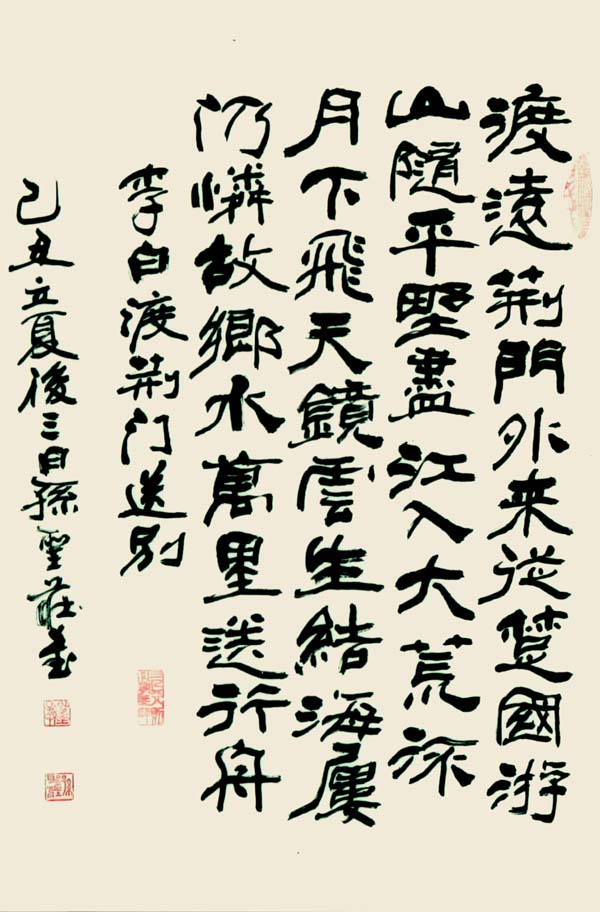 渡遠荆門外来從楚國游
山隨平野盡江入大荒流
月下飛天鏡雲生結海屢
仍憐故鄉水萬里送行舟
李白渡荆门送别
己丑立夏後三日孫聖莊書